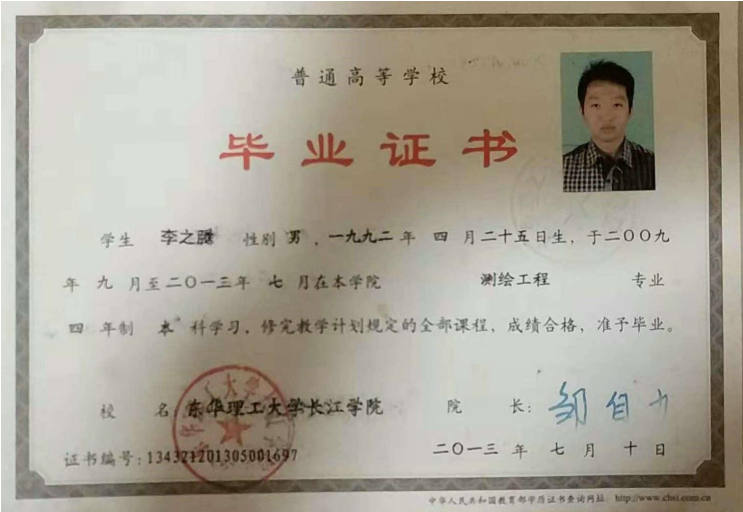 普通高等学校
毕业证书
学生 李之腾 性别 男，一九九二年 四 月二十五日生，于二〇〇九
年 九 月至二〇一三年 七 月在本学院 测绘工程 专业
四 年制 本 科学习，修完教学计划规定的全部课程、成绩合格，准予毕业。
校 名：东华理工大学长江学院 院 长：邹自力
证书编号：134321201305001697 二〇一三 年 七 月 十 日
中华人民共和国教育部学历证书查询网址：http://www.chsi.com.cn